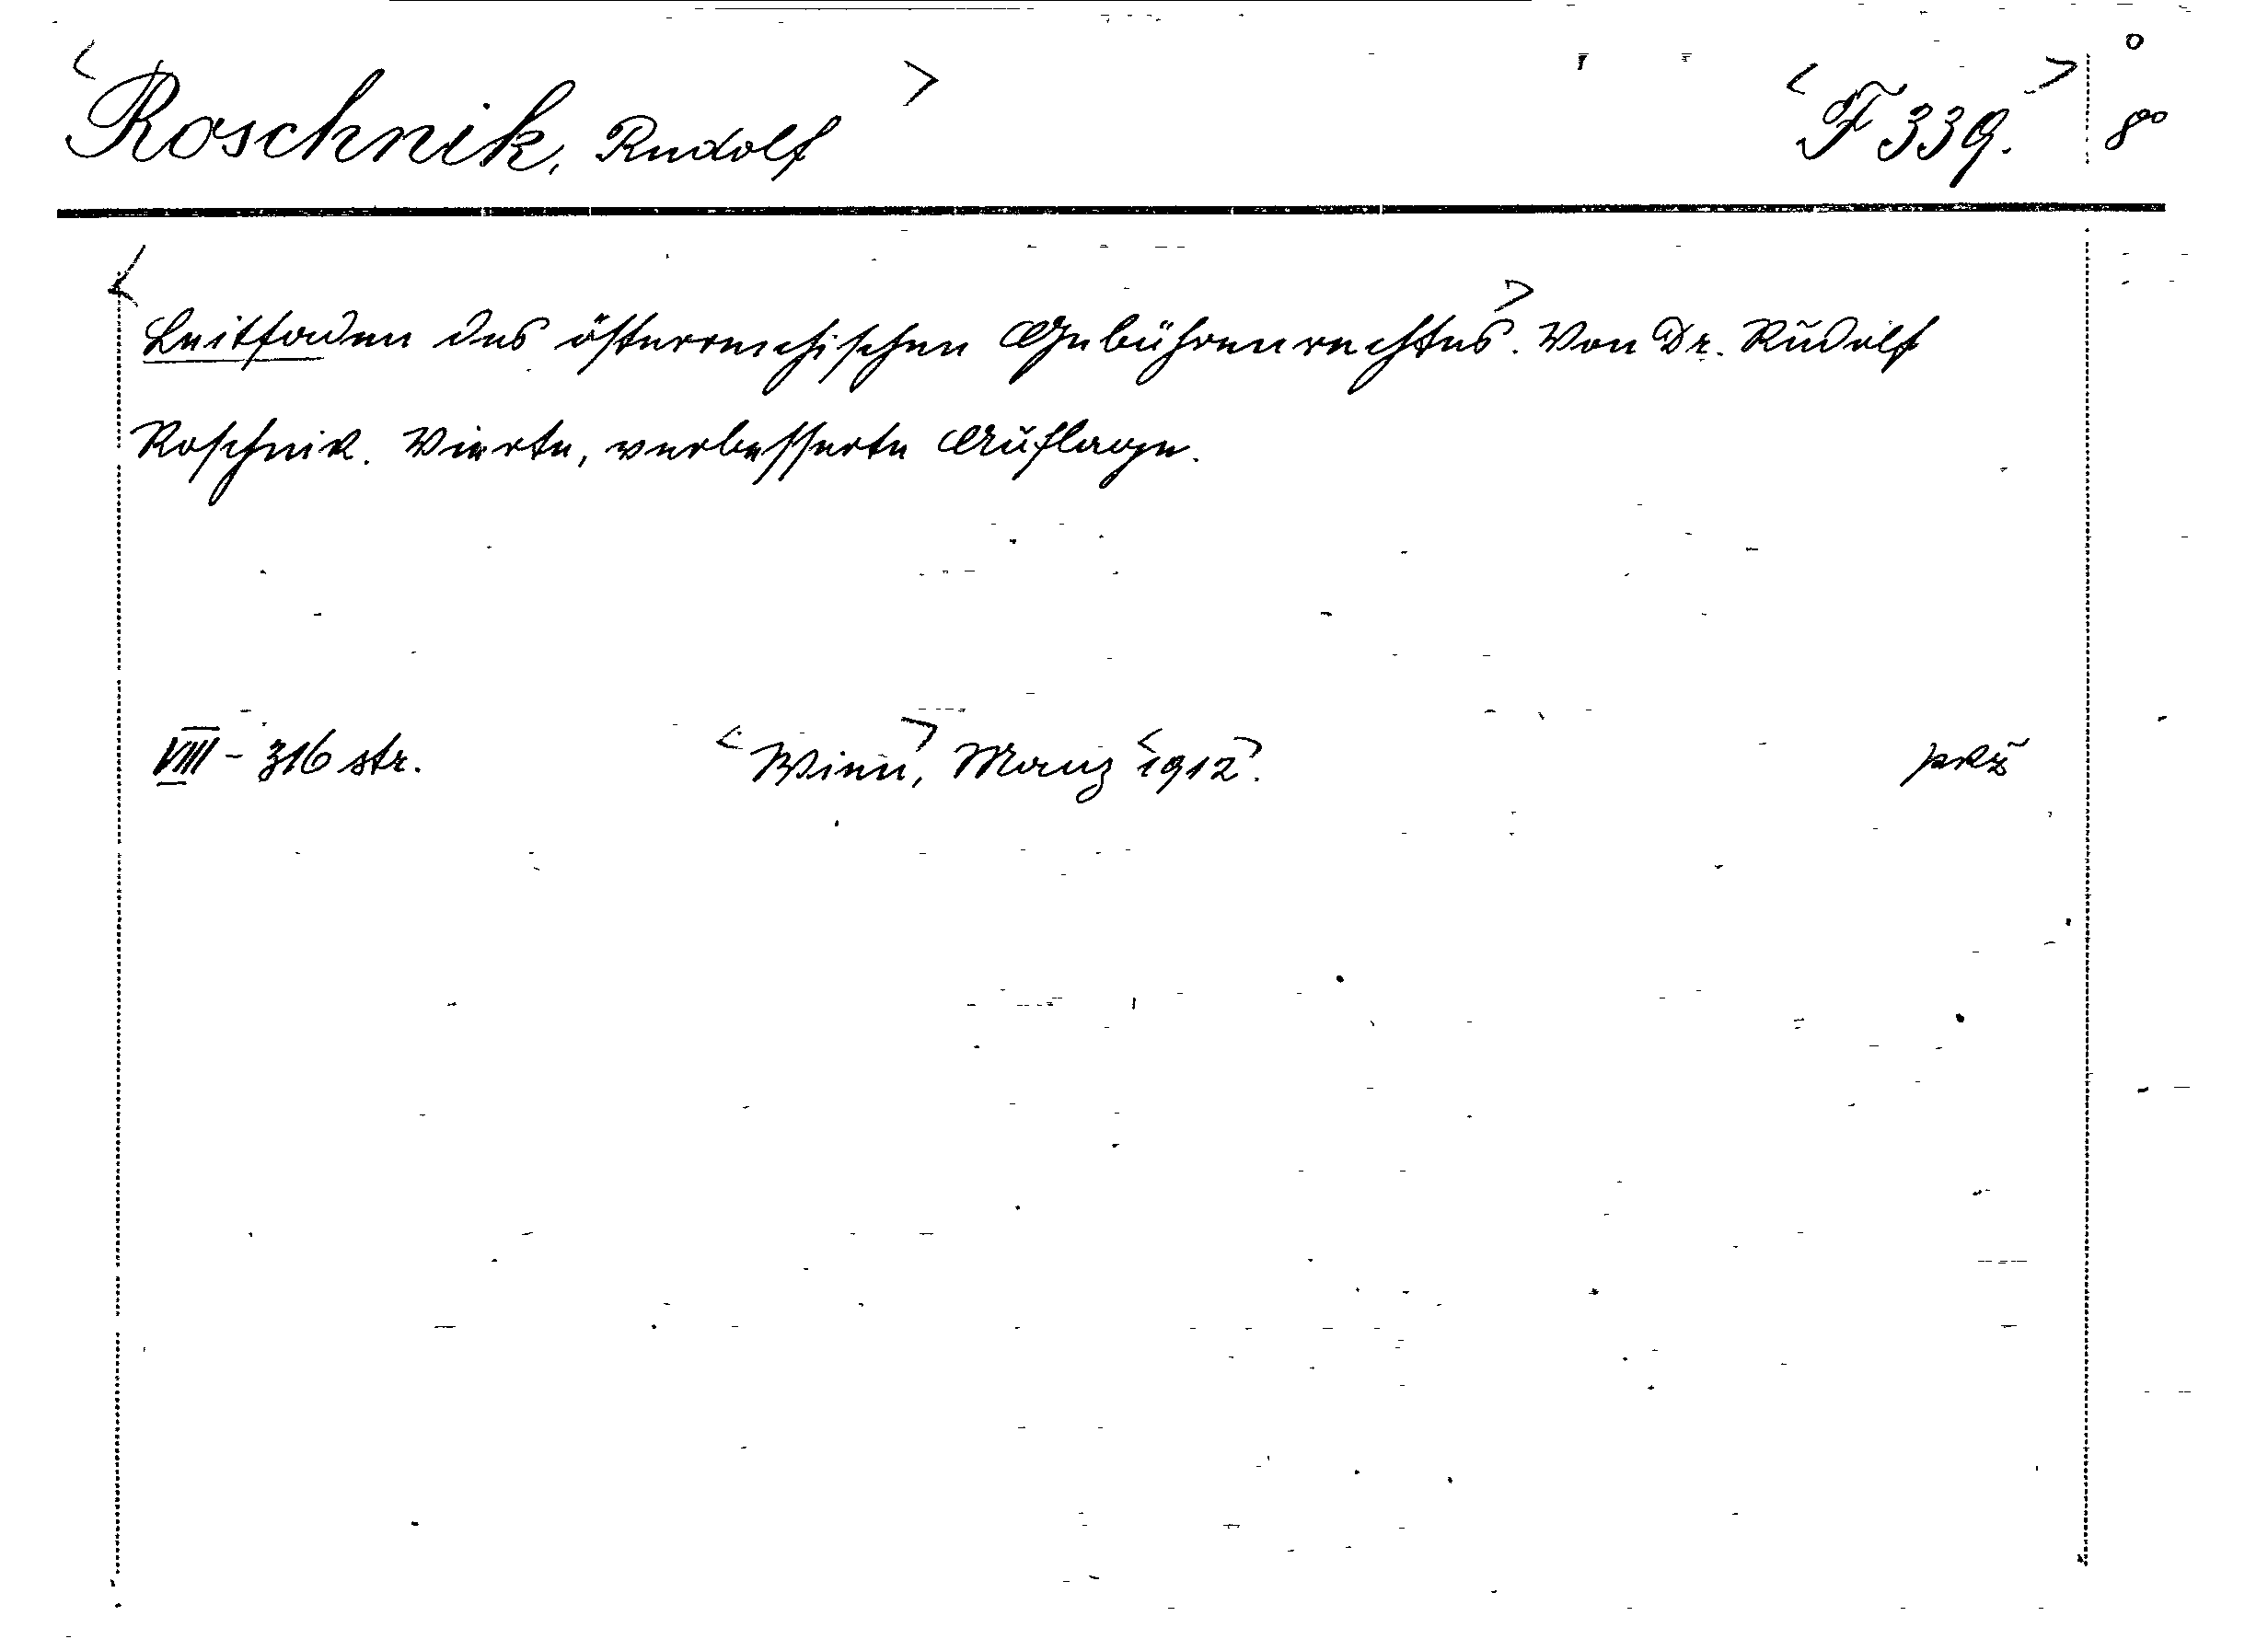 <Roschnik, Rudolf> <F 339.> 8°
<Leitfaden des österreichischen Gebührenrechtes>. Von Dr. Rudolf
Roschnik. Vierte, verbesserte Auflage.
VIII - 316 str. <Wien>, Manz <1912>. prž